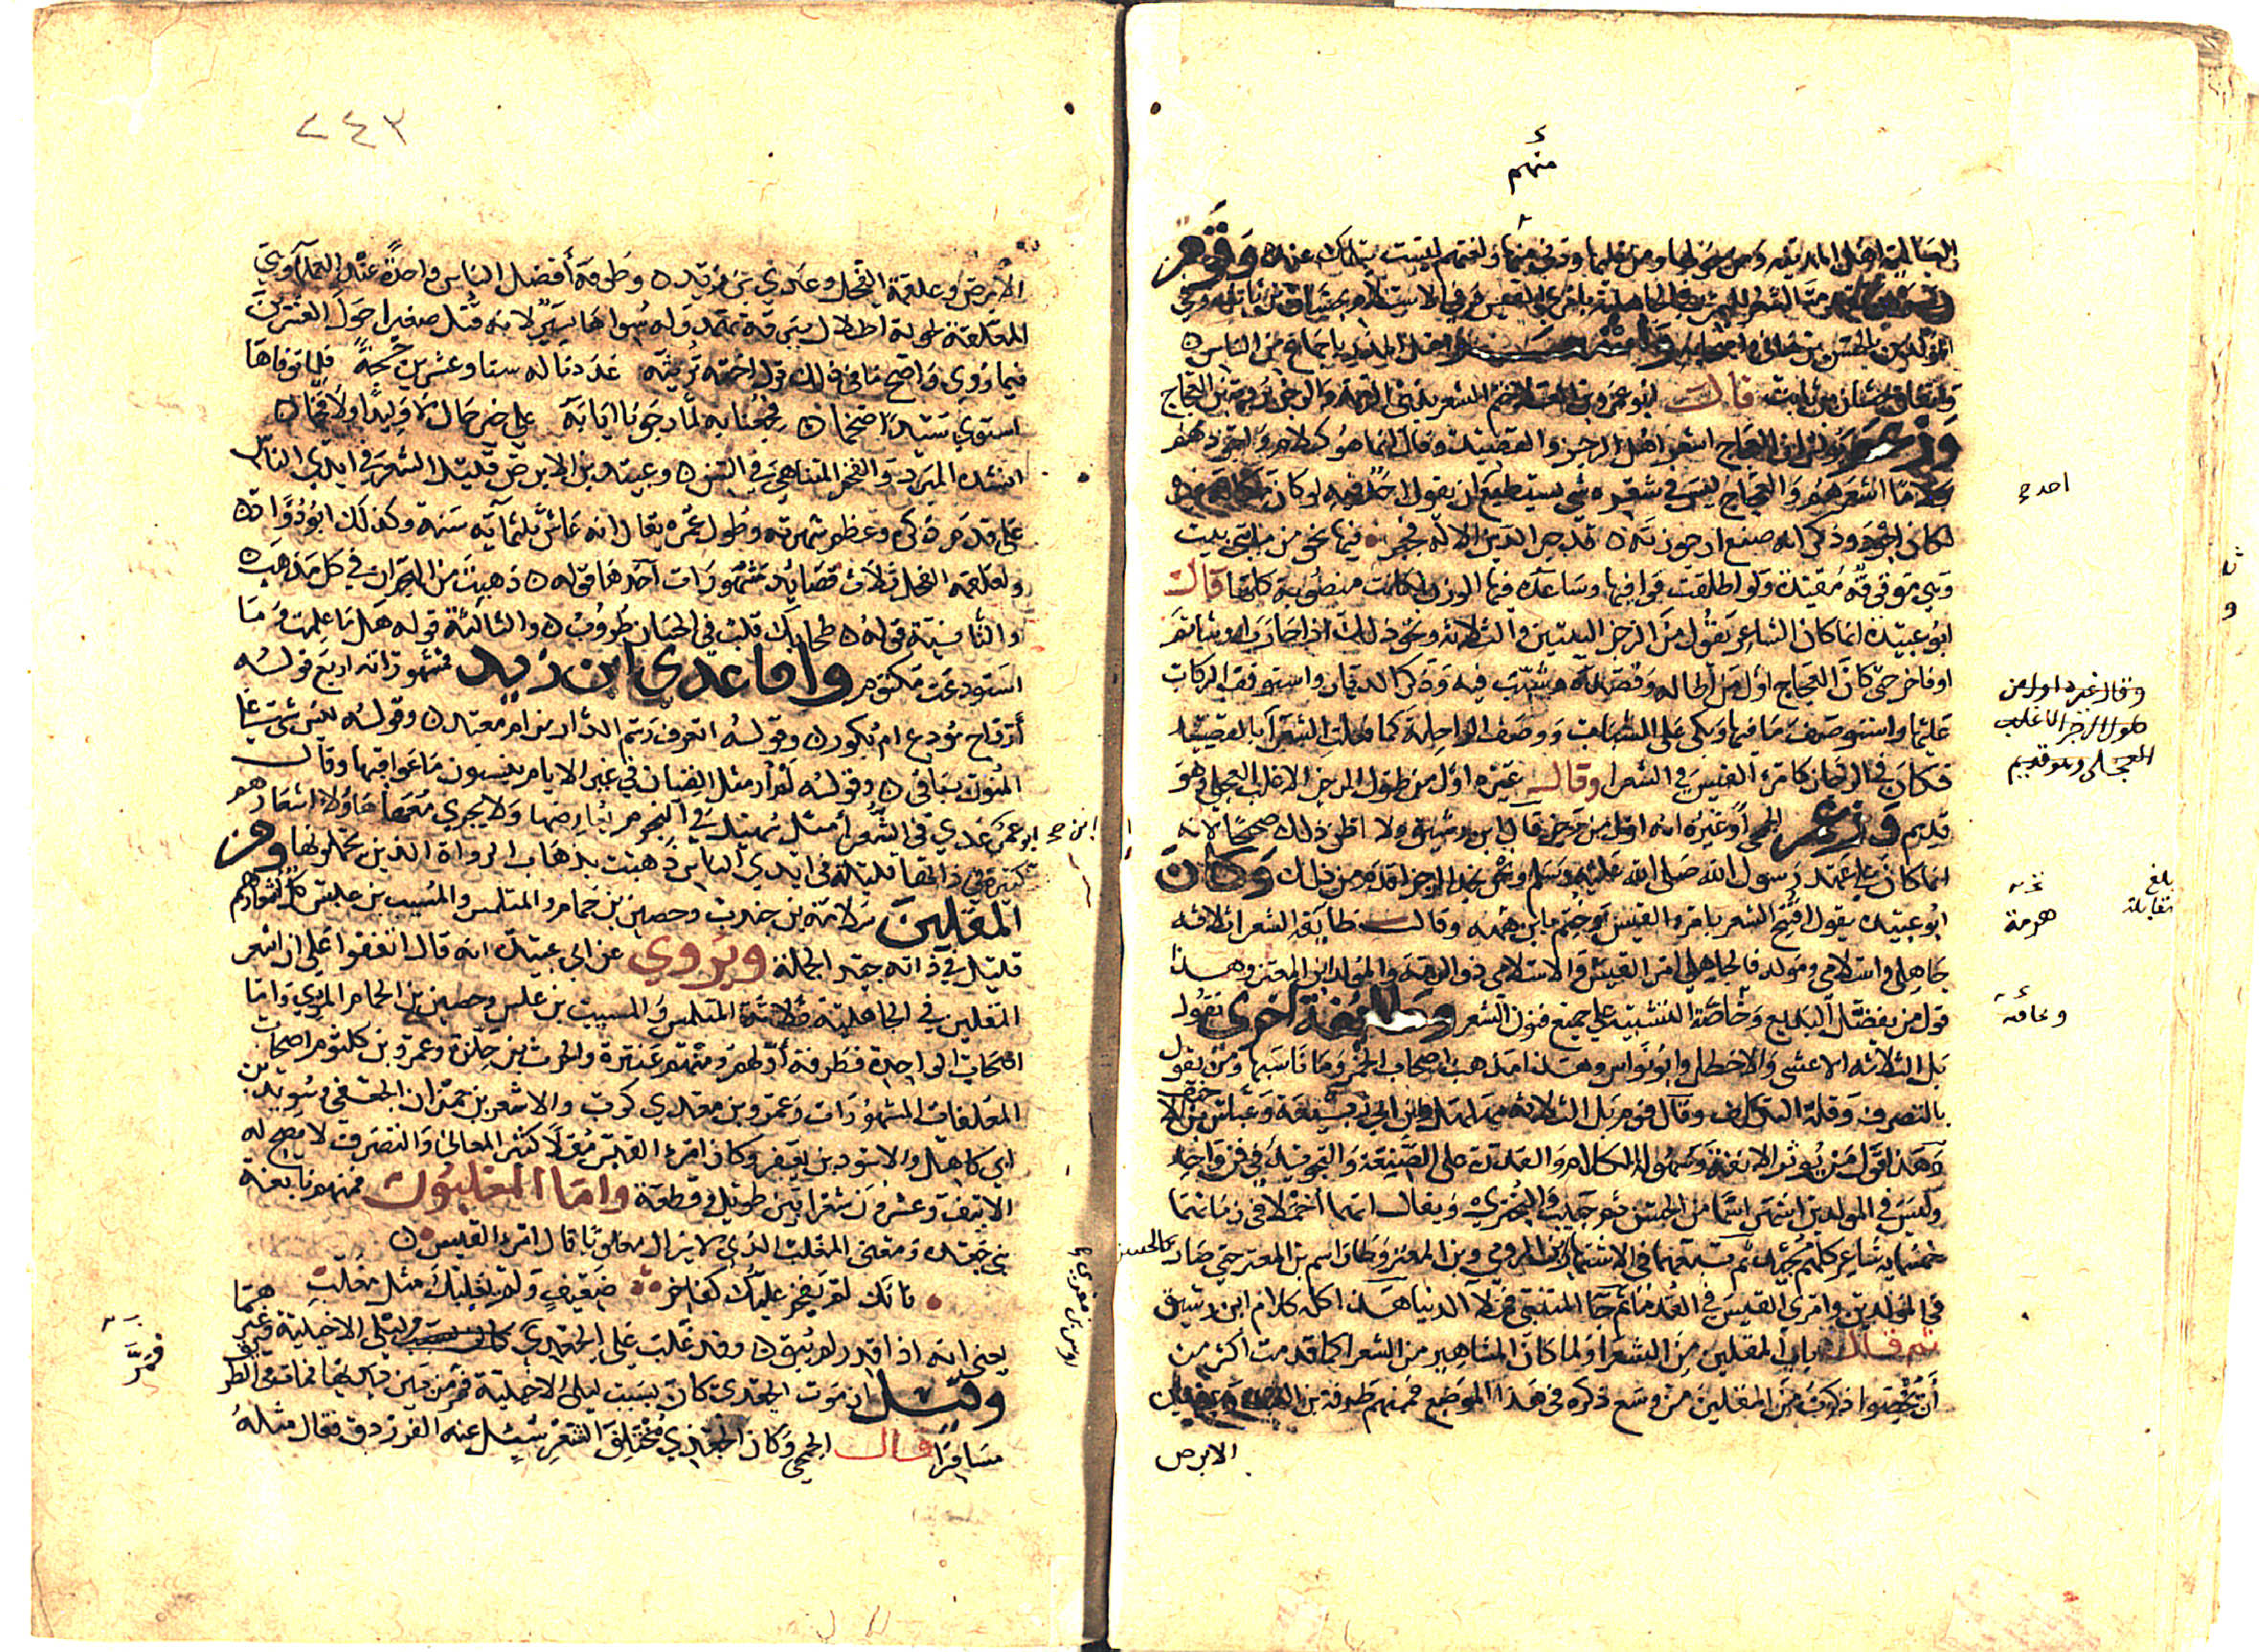 منهم
المولدين بالحسن بن هانئ
وباتفاق حسان بن ثابت قال ابو عمرو بن العلا ختم الشعر بذي الرمة والرجز برؤبة بن العجاج
وزعم يونس ان العجاج اشعر اهل الرجز والقصيد وقال انما هو كلام واجودهم
كلاما اشعرهم والعجاج ليس في شعره شي يستطيع ان يقول احد لو كان
لكان اجود وذكر انه صنع ارجوزته قد جبر الدين الاله فجبر فيها نحو من مايتي بيت
وهي موقوفة مقيدة ولو اطلقت قوافيها وساعد فيها الوزن لكانت منصوبة كلها قال
ابو عبيدة انما كان الشاعر يقول من الرجز البيتين والثلاثة ونحو ذلك اذا حارب او شاتم
او فاخر حتى كان العجاج اول من اطاله وقصده وشبب فيه وذكر الديار واستوقف الركاب
عليها واستوصف ما فيها وبكى على الشباب ووصف الراحلة كما فعلت الشعرا بالقصيد
فكان في الرجاز كامرئ القيس في الشعرا وقال غيره اول من طول الرجز الاغلب العجلي وهو
قديم وزعم الجمحي وغيره انه اول من رجز قال ابن رشيق ولا اظن ذلك صحيحا لانه
انما كان على عهد رسول الله صلى الله عليه وسلم ونحن نجد الرجز اقدم من ذلك وكان
ابو عبيدة يقول افتتح الشعر بامرؤ القيس وختم بابن هرمة وقالت طايفة الشعرا ثلاثة
جاهلي واسلامي ومولد فالجاهلي امرؤ القيس والاسلامي ذو الرمة والمولد ابن المعتز وهذا
قول من يفضل البديع وخاصة التشبيه على جميع فنون الشعر وطايفة اخرى تقول
بل الثلاثة الاعشى والاخطل وابو نواس وهذا مذهب اصحاب الخمر وما ناسبها ومن يقول
بالتصرف وقلة التكلف وقال قوم بل الثلاثة مهلهل وابن ابي ربيعة وعباس بن الاحنف
وهذا قول من يؤثر الانفة وسهولة الكلام والقدرة على الصنعة والتجويد في فن واحد
وليس في المولدين اشهر اسما من الحسن ثم حبيب والبحتري ويقال انهما اخملا في زمانهما
خمسماية شاعر كلهم مجيد ثم تبعهما في الاشتهار ابن الرومي وبن المعتز وطار اسم بن المعتز حتى صار كالحسن
في المولدين وامرئ القيس في القدما ثم جا المتنبي فملا الدنيا هذا كله كلام ابن رشيق
ثم قال باب المقلين من الشعرا ولما كان المشاهير من الشعرا كما قدمت اكثر من
ان يحصوا ذكرت من المقلين من وسع ذكره في هذا الموضع فمنهم طرفة بن العبد وعبيد بن
الابرص
وقال غيره اول من
طول الرجز الاغلب
العجلي وهو قديم
هرمة
بلغ
مقابلة
٢٤٣
الابرص وعلقمة الفحل وعدي بن زيد وطرفة افضل الناس واحدة عند العلما وهي
المعلقة لخولة اطلال ببرقة ثهمد وله سواها يسير لانه قتل صغيرا حول العشرين
فيما روي واضح ما في ذلك قول اخته ترثيه عددنا له ستا وعشرين حجة فلما توفاها
استوى سيدا ضخما فجعنا به لما رجونا ايابه على خير حال لا وليدا ولا قحما
انشده المبرد والقحم المتناهي في السن وعبيد بن الابرص قليل الشعر في ايدي الناس
على قدم ذكره وعظم شهرته وطول عمره يقال انه عاش ثلثماية سنة وكذلك ابو دؤاد
ولعلقمة الفحل ثلاث قصايد مشهورات احدها قوله ذهبت من الهجران في كل مذهب
والثانية قوله طحا بك قلب في الحسان طروب والثالثة قوله هل ما علمت وما
استودعت مكتوم واما عدي ابن زيد فمشهوراته اربع قوله
ارواح مودع ام بكور وقوله اتعرف رسم الدار من ام معبد وقوله ليس شي على
المنون بباقي وقوله لم ار مثل الفتيان في غبر الايام ينسون ما عواقبها وقال
ابو عمرو عدي في الشعرا مثل سهيل في النجوم يعارضها ولا يجري معها هاولا اشعارهم
كثيرة في ذاتها قليلة في ايدي الناس ذهبت بذهاب الرواة الذين يحملونها ومن
المقلين سلامة بن جندب وحصين بن حمام والمتلمس والمسيب بن علس كل اشعارهم
قليل في ذاته جيد الجملة ويروي عن ابي عبيدة انه قال اتفقوا على ان اشعر
المقلين في الجاهلية ثلاثة المتلمس والمسيب بن علس وحصين بن الحمام المري واما
اصحاب الواحدة فطرفة اولهم ومنهم عنترة والحرث بن حلزة وعمرو بن كلثوم اصحاب
المعلقات المشهورات وعمرو بن معدي كرب والاشعر بن حمران الجعفي وسويد بن
ابي كاهل والاسود بن يعفر وكان امرؤ القيس مقلا كثير المعاني والتصرف لا يصح له
الا نيف وعشرون شعرا بين طويل وقطعة واما المغلبون فمنهم نابغة
بني جعدة ومعنى المغلب الذي لا يزال مغلوبا قال امرؤ القيس
فانك لم يفخر عليك كفاخر ضعيف ولم يغلبك مثل مغلب
يعني انه اذا قدر لم يبق وقد غلبت على الجعدي وليلى الاخيلية
وقيل ان موت الجعدي كان بسبب ليلى الاخيلية فر من بين يديها فمات في الطريق
مسافرا قال الجمحي وكان الجعدي مختلف الشعر سئل عنه الفرزدق فقال مثله